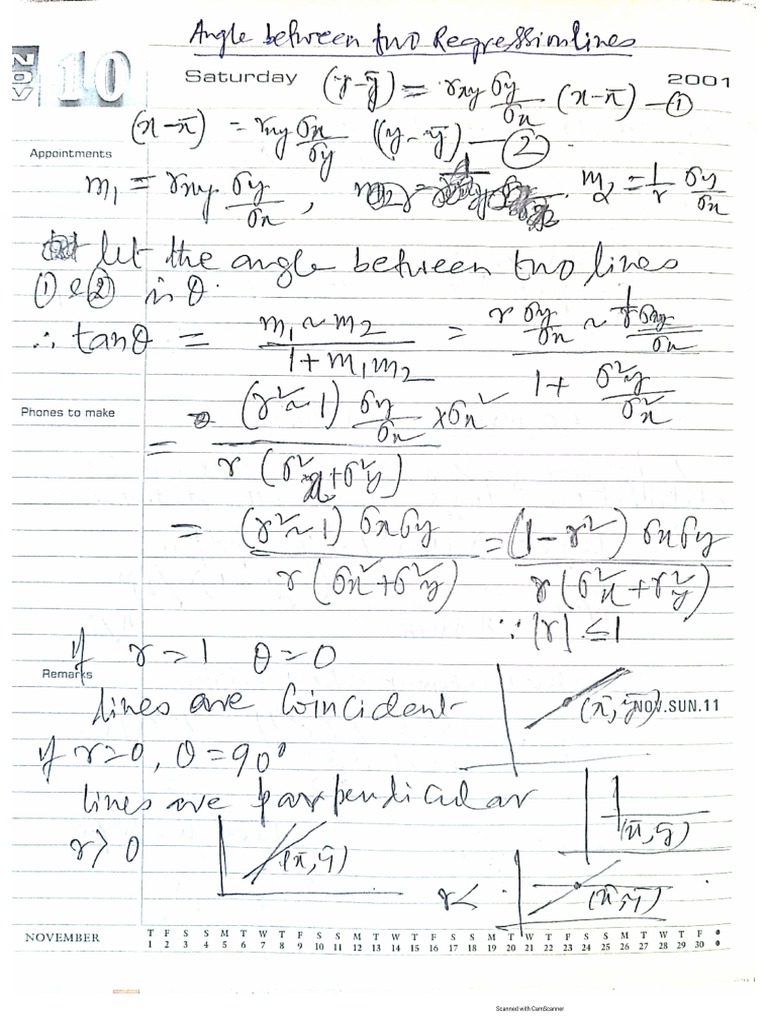 Angle between two Regression lines
NOV 10 Saturday 2001
(y-ȳ) = rxy σy/σx (x-x̄) — ①
(x-x̄) = rxy σx/σy (y-ȳ) — ②
Appointments
m₁ = rxy σy/σx , m₂ = 1/r σy/σx
let the angle between two lines
① & ② is θ.
∴ tanθ = m₁ ~ m₂ / 1 + m₁m₂ = r σy/σx ~ 1/r σy/σx / 1 + σ²y/σ²x
Phones to make
= (r² ~ 1) σy/σx × σx² / r (σ²x + σ²y)
= (r² ~ 1) σxσy / r (σx² + σ²y) = (1 - r²) σxσy / r (σ²x + r²y)
∵ |r| ≤ 1
if r = 1 θ = 0
Remarks
lines are Coincident
(x̄, ȳ) NOV.SUN.11
if r=0, θ = 90°
lines are parpendicular
(x̄, ȳ)
r > 0 (x̄, ȳ)
r < (x̄, ȳ)
NOVEMBER T F S S M T W T F S S M T W T F S S M T W T F S S M T W T F
1 2 3 4 5 6 7 8 9 10 11 12 13 14 15 16 17 18 19 20 21 22 23 24 25 26 27 28 29 30
Scanned with CamScanner